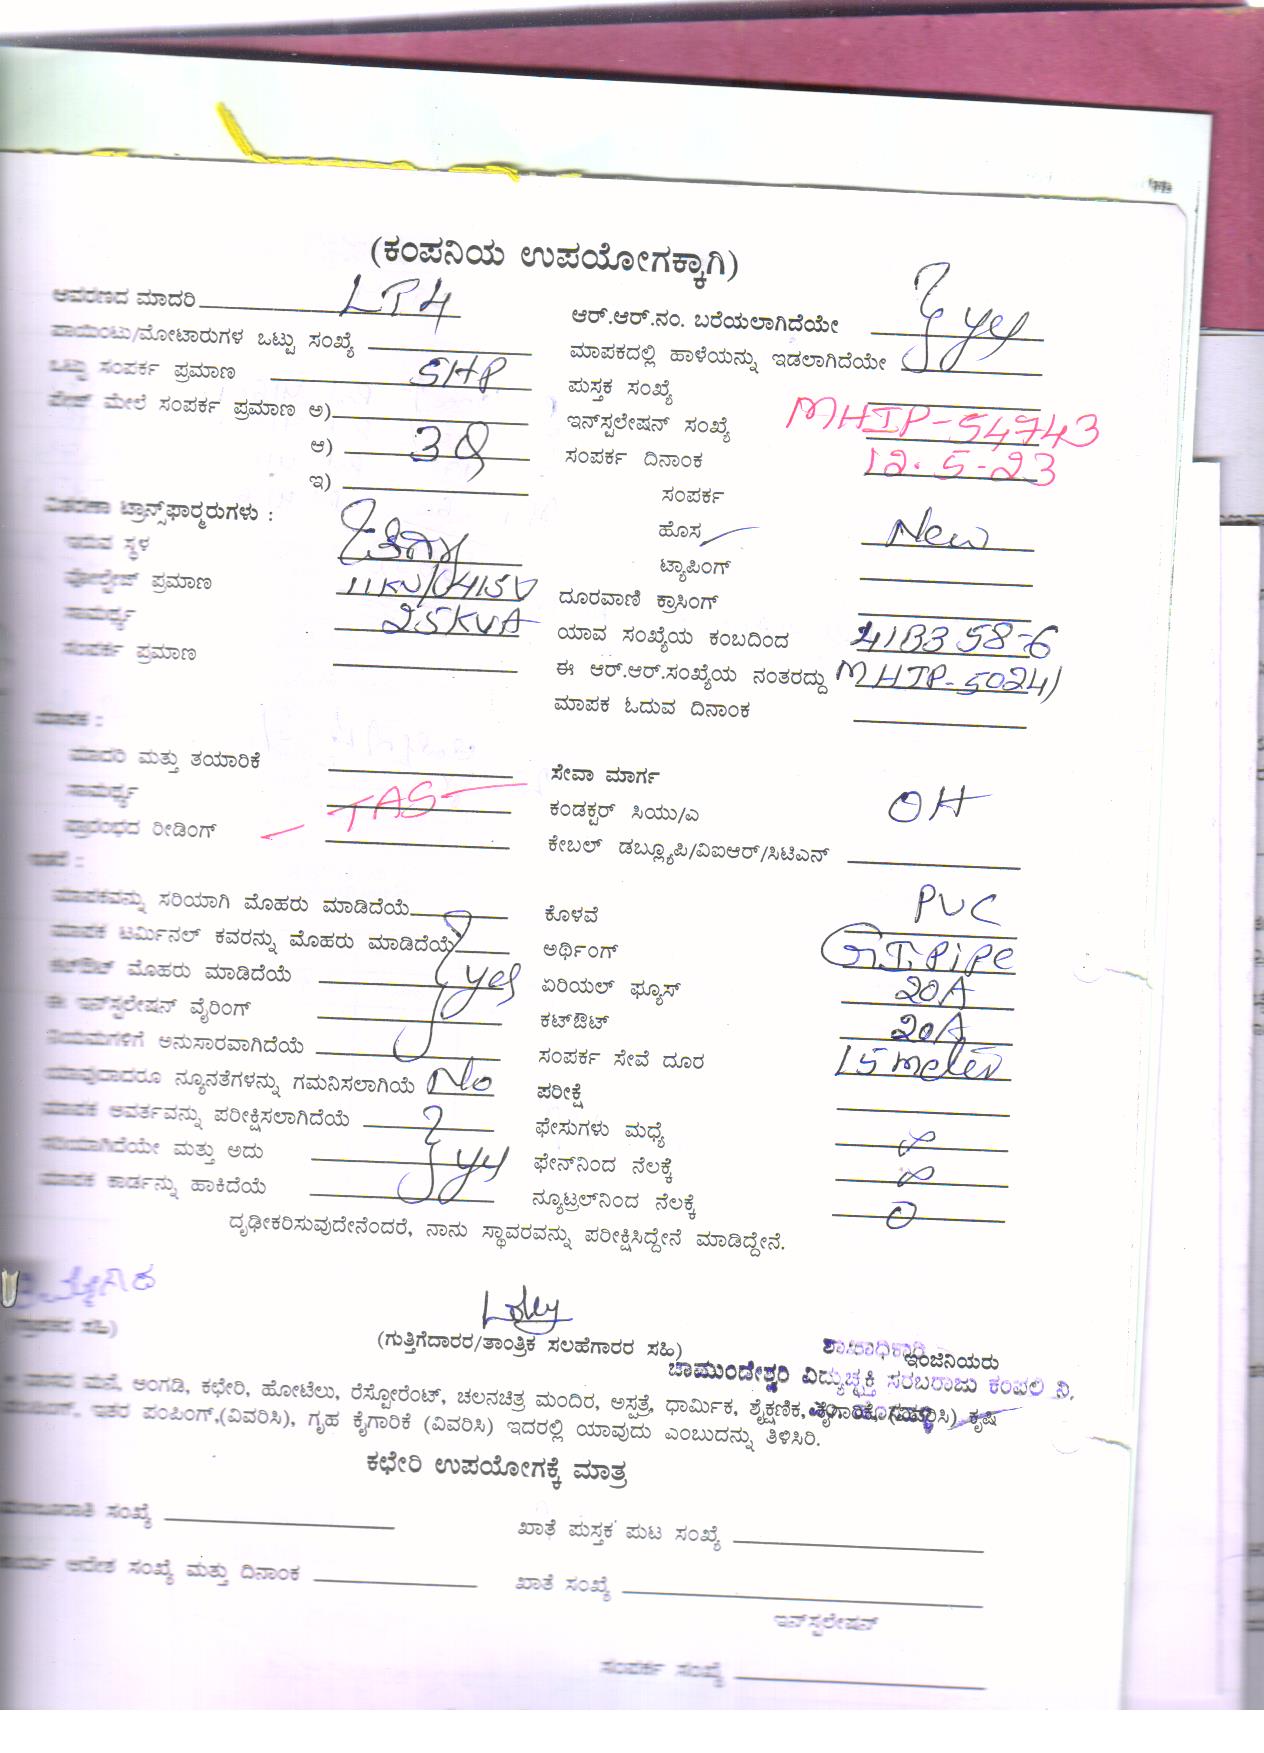 (ಕಂಪನಿಯ ಉಪಯೋಗಕ್ಕಾಗಿ)
ಆವರಣದ ಮಾದರಿ LT4
ಆರ್.ಆರ್.ನಂ. ಬರೆಯಲಾಗಿದೆಯೇ
ಪಾಯಿಂಟು/ಮೋಟಾರುಗಳ ಒಟ್ಟು ಸಂಖ್ಯೆ
ಮಾಪಕದಲ್ಲಿ ಹಾಳೆಯನ್ನು ಇಡಲಾಗಿದೆಯೇ yes
ಒಟ್ಟು ಸಂಪರ್ಕ ಪ್ರಮಾಣ 5HP
ಪುಸ್ತಕ ಸಂಖ್ಯೆ
ಮೇಲೆ ಸಂಪರ್ಕ ಪ್ರಮಾಣ ಅ)
ಇನ್‌ಸ್ಟಲೇಷನ್ ಸಂಖ್ಯೆ MHIP-54743
ಆ)
ಸಂಪರ್ಕ ದಿನಾಂಕ 12.5-23
ಇ)
ಸಂಪರ್ಕ
ವಿತರಣಾ ಟ್ರಾನ್ಸ್‌ಫಾರ್ಮರುಗಳು :
ಹೊಸ New
ಇರುವ ಸ್ಥಳ
ಟ್ಯಾಪಿಂಗ್
ವೋಲ್ಟೇಜ್ ಪ್ರಮಾಣ 11KV/0415V
ದೂರವಾಣಿ ಕ್ರಾಸಿಂಗ್
ಸಾಮರ್ಥ್ಯ 25KVA
ಯಾವ ಸಂಖ್ಯೆಯ ಕಂಬದಿಂದ 41B358-6
ಸಂಪರ್ಕ ಪ್ರಮಾಣ
ಈ ಆರ್.ಆರ್.ಸಂಖ್ಯೆಯ ನಂತರದ್ದು MHIP-50241
ಮಾಪಕ ಓದುವ ದಿನಾಂಕ
ಮಾಪಕ :
ಮಾದರಿ ಮತ್ತು ತಯಾರಿಕೆ
ಸೇವಾ ಮಾರ್ಗ
ಸಾಮರ್ಥ್ಯ TAS
ಕಂಡಕ್ಟರ್ ಸಿಯು/ಎ OH
ಪ್ರಾರಂಭದ ರೀಡಿಂಗ್
ಕೇಬಲ್ ಡಬ್ಲ್ಯೂಪಿ/ವಿಐಆರ್/ಸಿಟಿಎನ್
ಮಾಪಕವನ್ನು ಸರಿಯಾಗಿ ಮೊಹರು ಮಾಡಿದೆಯೆ
ಕೊಳವೆ PVC
ಮಾಪಕ ಟರ್ಮಿನಲ್ ಕವರನ್ನು ಮೊಹರು ಮಾಡಿದೆಯೆ
ಅರ್ಥಿಂಗ್ GI PiPe
ಕಟ್‌ಔಟ್ ಮೊಹರು ಮಾಡಿದೆಯೆ yes
ಏರಿಯಲ್ ಫ್ಯೂಸ್ 20A
ಈ ಇನ್‌ಸ್ಟಲೇಷನ್ ವೈರಿಂಗ್
ಕಟ್‌ಔಟ್ 20A
ನಿಯಮಗಳಿಗೆ ಅನುಸಾರವಾಗಿದೆಯೆ
ಸಂಪರ್ಕ ಸೇವೆ ದೂರ 15 meter
ಯಾವುದಾದರೂ ನ್ಯೂನತೆಗಳನ್ನು ಗಮನಿಸಲಾಗಿಯೆ No
ಪರೀಕ್ಷೆ
ಮಾಪಕ ಅವರ್ತವನ್ನು ಪರೀಕ್ಷಿಸಲಾಗಿದೆಯೆ
ಫೇಸುಗಳು ಮಧ್ಯೆ ∞
ಸರಿಯಾಗಿದೆಯೇ ಮತ್ತು ಅದು yes
ಫೇನ್‌ನಿಂದ ನೆಲಕ್ಕೆ ∞
ಮಾಪಕ ಕಾರ್ಡನ್ನು ಹಾಕಿದೆಯೆ
ನ್ಯೂಟ್ರಲ್‌ನಿಂದ ನೆಲಕ್ಕೆ 0
ದೃಢೀಕರಿಸುವುದೇನೆಂದರೆ, ನಾನು ಸ್ಥಾವರವನ್ನು ಪರೀಕ್ಷಿಸಿದ್ದೇನೆ ಮಾಡಿದ್ದೇನೆ.
ಸಹಿ)
(ಗುತ್ತಿಗೆದಾರರ/ತಾಂತ್ರಿಕ ಸಲಹೆಗಾರರ ಸಹಿ)
ಶಾಖಾಧಿಕಾರಿ
ಇಂಜಿನಿಯರು
ಚಾಮುಂಡೇಶ್ವರಿ ವಿದ್ಯುಚ್ಛಕ್ತಿ ಸರಬರಾಜು ಕಂಪನಿ ನಿ.
ವಾಸದ ಮನೆ, ಅಂಗಡಿ, ಕಛೇರಿ, ಹೋಟೆಲು, ರೆಸ್ಟೋರೆಂಟ್, ಚಲನಚಿತ್ರ ಮಂದಿರ, ಅಸ್ಪತ್ರೆ, ಧಾರ್ಮಿಕ, ಶೈಕ್ಷಣಿಕ, ಕೈಗಾರಿಕೆ (ವಿವರಿಸಿ) ಕೃಷಿ
ಇತರ ಪಂಪಿಂಗ್,(ವಿವರಿಸಿ), ಗೃಹ ಕೈಗಾರಿಕೆ (ವಿವರಿಸಿ) ಇದರಲ್ಲಿ ಯಾವುದು ಎಂಬುದನ್ನು ತಿಳಿಸಿರಿ.
ಕಛೇರಿ ಉಪಯೋಗಕ್ಕೆ ಮಾತ್ರ
ಸಂಖ್ಯೆ
ಖಾತೆ ಪುಸ್ತಕ ಪುಟ ಸಂಖ್ಯೆ
ಆದೇಶ ಸಂಖ್ಯೆ ಮತ್ತು ದಿನಾಂಕ
ಖಾತೆ ಸಂಖ್ಯೆ
ಇನ್‌ಸ್ಟಲೇಷನ್
ಸಂಪರ್ಕ ಸಂಖ್ಯೆ